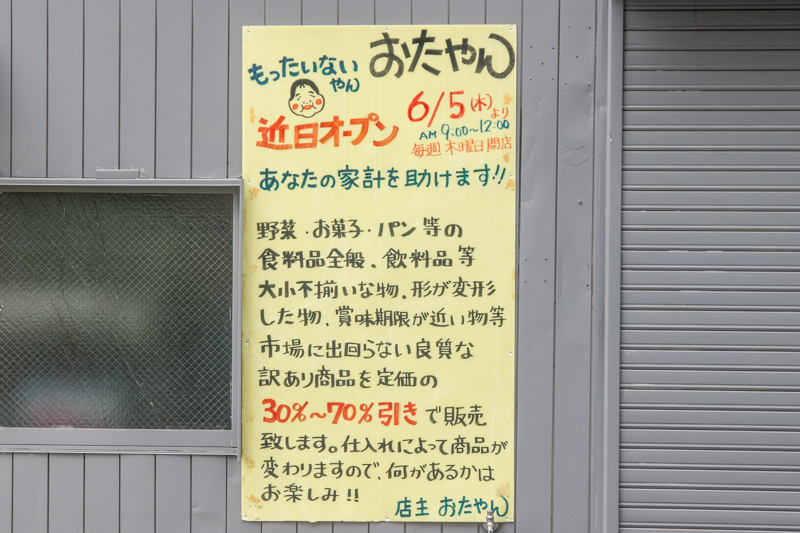 もったいない
やん
おたやん
近日オープン
6/5(木)より
AM 9:00~12:00
毎週 木曜日開店
あなたの家計を助けます!!
野菜・お菓子・パン等の
食料品全般、飲料品等
大小不揃いな物、形が変形
した物、賞味期限が近い物等
市場に出回らない良質な
訳あり商品を定価の
30%~70%引きで販売
致します。仕入れによって商品が
変わりますので、何があるかは
お楽しみ!!
店主 おたやん